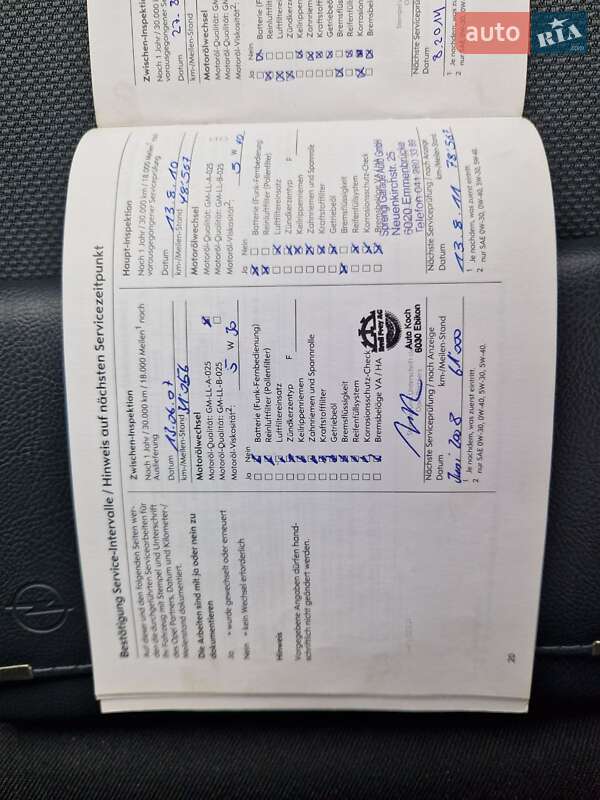 Bestätigung Service-Intervalle / Hinweis auf nächsten Servicezeitpunkt
Auf dieser und den folgenden Seiten wer-
den die durchgeführten Servicearbeiten für
Ihr Fahrzeug mit Stempel und Unterschrift
des Opel Partners, Datum und Kilometer-/
Meilenstand dokumentiert.
Die Arbeiten sind mit ja oder nein zu
dokumentieren
Ja = wurde gewechselt oder erneuert
Nein = kein Wechsel erforderlich
Hinweis
Vorgegebene Angaben dürfen hand-
schriftlich nicht geändert werden.
20
Zwischen-Inspektion
Nach 1 Jahr / 30.000 km / 18.000 Meilen1 nach
Auslieferung
Datum 13.06.07
km-/Meilen-Stand
Motorölwechsel
Motoröl-Qualität: GM-LL-A-025
Motoröl-Qualität: GM-LL-B-025
Motoröl-Viskosität2: 5 W 30
Ja Nein
Batterie (Funk-Fernbedienung)
Reinluftfilter (Pollenfilter)
Luftfiltereinsatz
Zündkerzentyp F
Keilrippenriemen
Zahnriemen und Spannrolle
Kraftstofffilter
Getriebeöl
Bremsflüssigkeit
Reifenfüllsystem
Korrosionsschutz-Check
Bremsbeläge VA / HA
Auto Koch
6030 Ebikon
Nächste Serviceprüfung / nach Anzeige
Datum km-/Meilen-Stand
Juni 2008 61'000
1 Je nachdem, was zuerst eintritt.
2 nur SAE 0W-30, 0W-40, 5W-30, 5W-40.
Haupt-Inspektion
Nach 1 Jahr / 30.000 km / 18.000 Meilen1 nach
vorausgegangener Serviceprüfung
Datum 13.8.10
km-/Meilen-Stand 48.557
Motorölwechsel
Motoröl-Qualität: GM-LL-A-025
Motoröl-Qualität: GM-LL-B-025
Motoröl-Viskosität2: 5 W
Ja Nein
Batterie (Funk-Fernbedienung)
Reinluftfilter (Pollenfilter)
Luftfiltereinsatz
Zündkerzentyp F
Keilrippenriemen
Zahnriemen und Spannrolle
Kraftstofffilter
Getriebeöl
Bremsflüssigkeit
Reifenfüllsystem
Korrosionsschutz-Check
Bremsbeläge VA / HA
Sprengi Garage Auto GmbH
Neuenkirchstr. 25
6020 Emmenbrücke
Telefon 041 280 33 89
Nächste Serviceprüfung / nach Anzeige
Datum km-/Meilen-Stand
13.8.11 78.562
1 Je nachdem, was zuerst eintritt.
2 nur SAE 0W-30, 0W-40, 5W-30, 5W-40.
Zwischen-Inspektion
Nach 1 Jahr / 30.000 km
vorausgegangener Service
Datum
km-/Meilen-Stand
Motorölwechsel
Motoröl-Qualität: GM
Motoröl-Qualität: GM
Motoröl-Viskosität2:
Ja Nein
Batterie
Reinluftfilter
Luftfiltereinsatz
Zündkerzen
Keilrippen
Zahnriemen
Kraftstoff
Getriebeöl
Bremsflüs
Reifenfüll
Korrosion
Bremsbel
Nächste Serviceprü
Datum
8.2014
1 Je nachdem, was
2 nur SAE 0W-30,
auto RIA.com